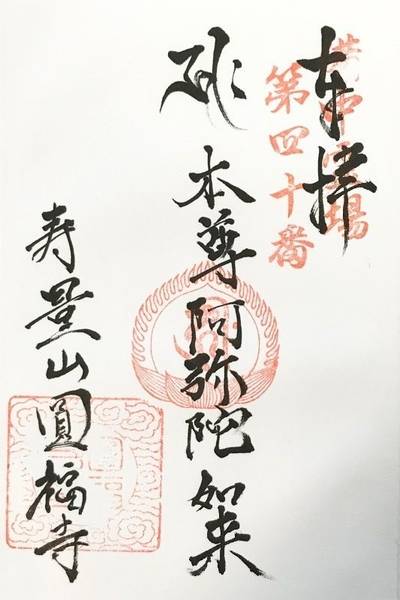 奉拝
第四十番
本尊阿弥陀如来
寿量山圓福寺